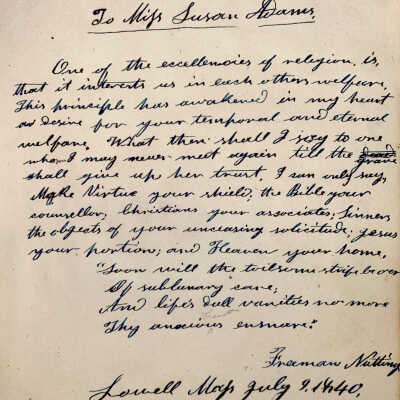 To Miss Susan Adams.
One of the excellencies of religion, is,
that it interests us in each others welfare.
This principle has awakened in my heart
a desire for your temporal and eternal
welfare. What then shall I say to one
whom I may never meet again till the dead grave
shall give up her trust, I can only say,
Make Virtue your shield, the Bible your
counsellor, Christians your associates; Sinners
the objects of your unceasing solicitude; Jesus
your portion; and Heaven your home.
"Soon will the toilsome strife be oer
Of sublunary care;
And life's dull vanities no more
Thy anxious ensnare."
Freeman Nutting
Lowell Mass July 9. 1840.